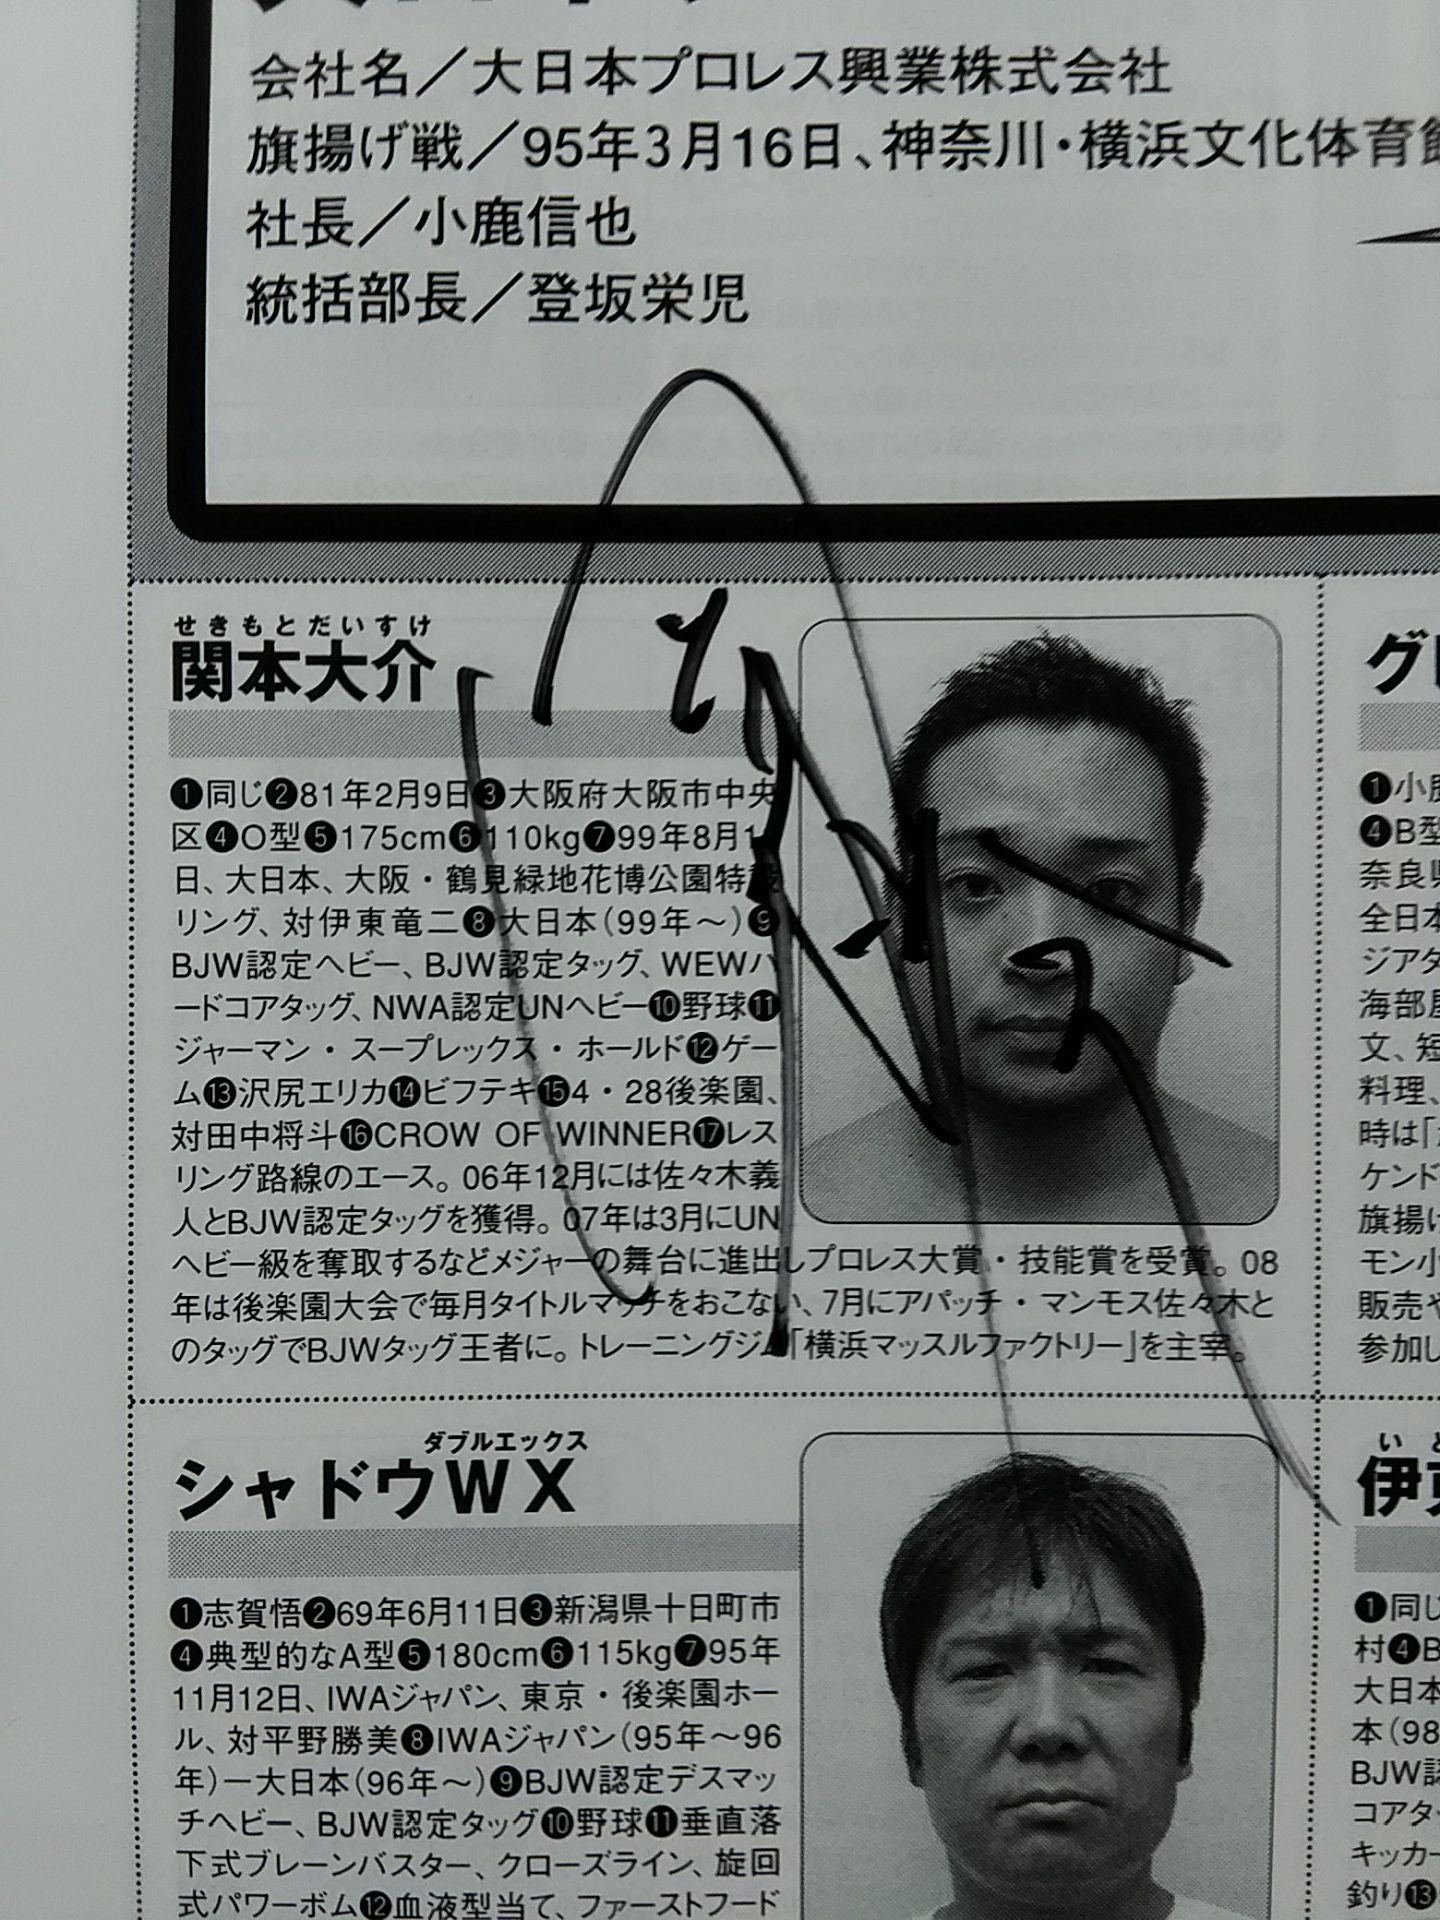 会社名／大日本プロレス興業株式会社
旗揚げ戦／95年3月16日、神奈川・横浜文化体育館
社長／小鹿信也
統括部長／登坂栄児
せきもとだいすけ
関本大介
❶同じ❷81年2月9日❸大阪府大阪市中央
区❹O型❺175cm❻110kg❼99年8月1
日、大日本、大阪・鶴見緑地花博公園特設
リング、対伊東竜二❽大日本（99年～）❾
BJW認定ヘビー、BJW認定タッグ、WEWハ
ードコアタッグ、NWA認定UNヘビー❿野球⓫
ジャーマン・スープレックス・ホールド⓬ゲー
ム⓭沢尻エリカ⓮ビフテキ⓯4・28後楽園、
対田中将斗⓰CROW OF WINNER⓱レス
リング路線のエース。06年12月には佐々木義
人とBJW認定タッグを獲得。07年は3月にUN
ヘビー級を奪取するなどメジャーの舞台に進出しプロレス大賞・技能賞を受賞。08
年は後楽園大会で毎月タイトルマッチをおこない、7月にアパッチ・マンモス佐々木と
のタッグでBJWタッグ王者に。トレーニングジム「横浜マッスルファクトリー」を主宰。
ダブルエックス
シャドウWX
❶志賀悟❷69年6月11日❸新潟県十日町市
❹典型的なA型❺180cm❻115kg❼95年
11月12日、IWAジャパン、東京・後楽園ホー
ル、対平野勝美❽IWAジャパン（95年～96
年）ー大日本（96年～）❾BJW認定デスマッ
チヘビー、BJW認定タッグ❿野球⓫垂直落
下式ブレーンバスター、クローズライン、旋回
式パワーボム⓬血液型当て、ファーストフード
グ
❶小鹿
❹B型
奈良県
全日本
ジアタ
海部屋
文、短
料理、
時は「
ケンド
旗揚げ
モン小
販売や
参加し
いと
伊東
❶同じ
村❹B
大日本
本（98
BJW認
コアタッ
キッカー
釣り⓭